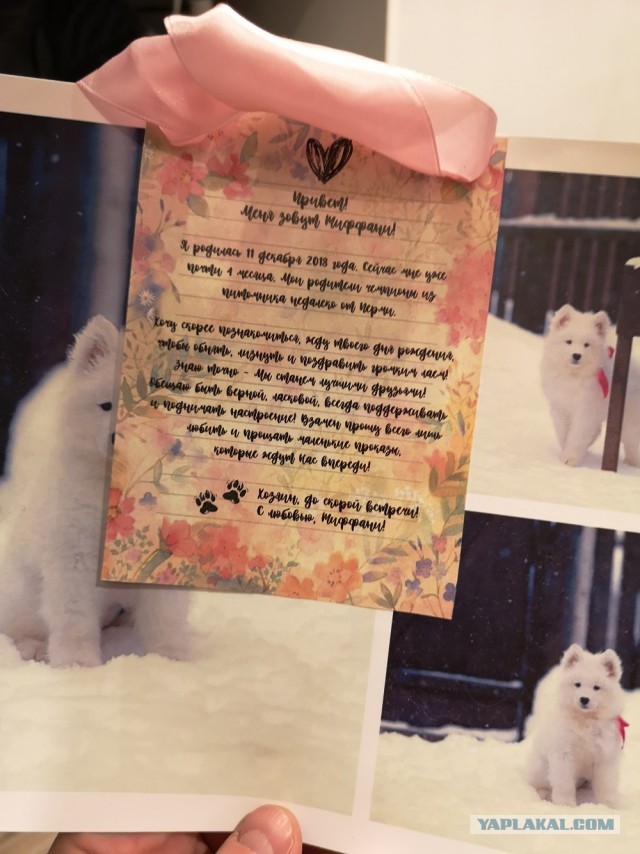 Привет!
Меня зовут Тиффани!
Я родилась 11 декабря 2018 года. Сейчас мне уже
почти 4 месяца. Мои родители чемпионы из
питомника недалеко от Перми.
Хочу скорее познакомиться, жду твоего дня рождения,
чтобы обнять, лизнуть и поздравить громким лаем!
Знаю точно - мы станем лучшими друзьями!
Обещаю быть верной, ласковой, всегда поддерживать
и поднимать настроение! Взамен прошу всего лишь
любить и прощать маленькие проказы,
которые ждут нас впереди!
Хозяин, до скорой встречи!
С любовью, Тиффани!
YAPLAKAL.COM